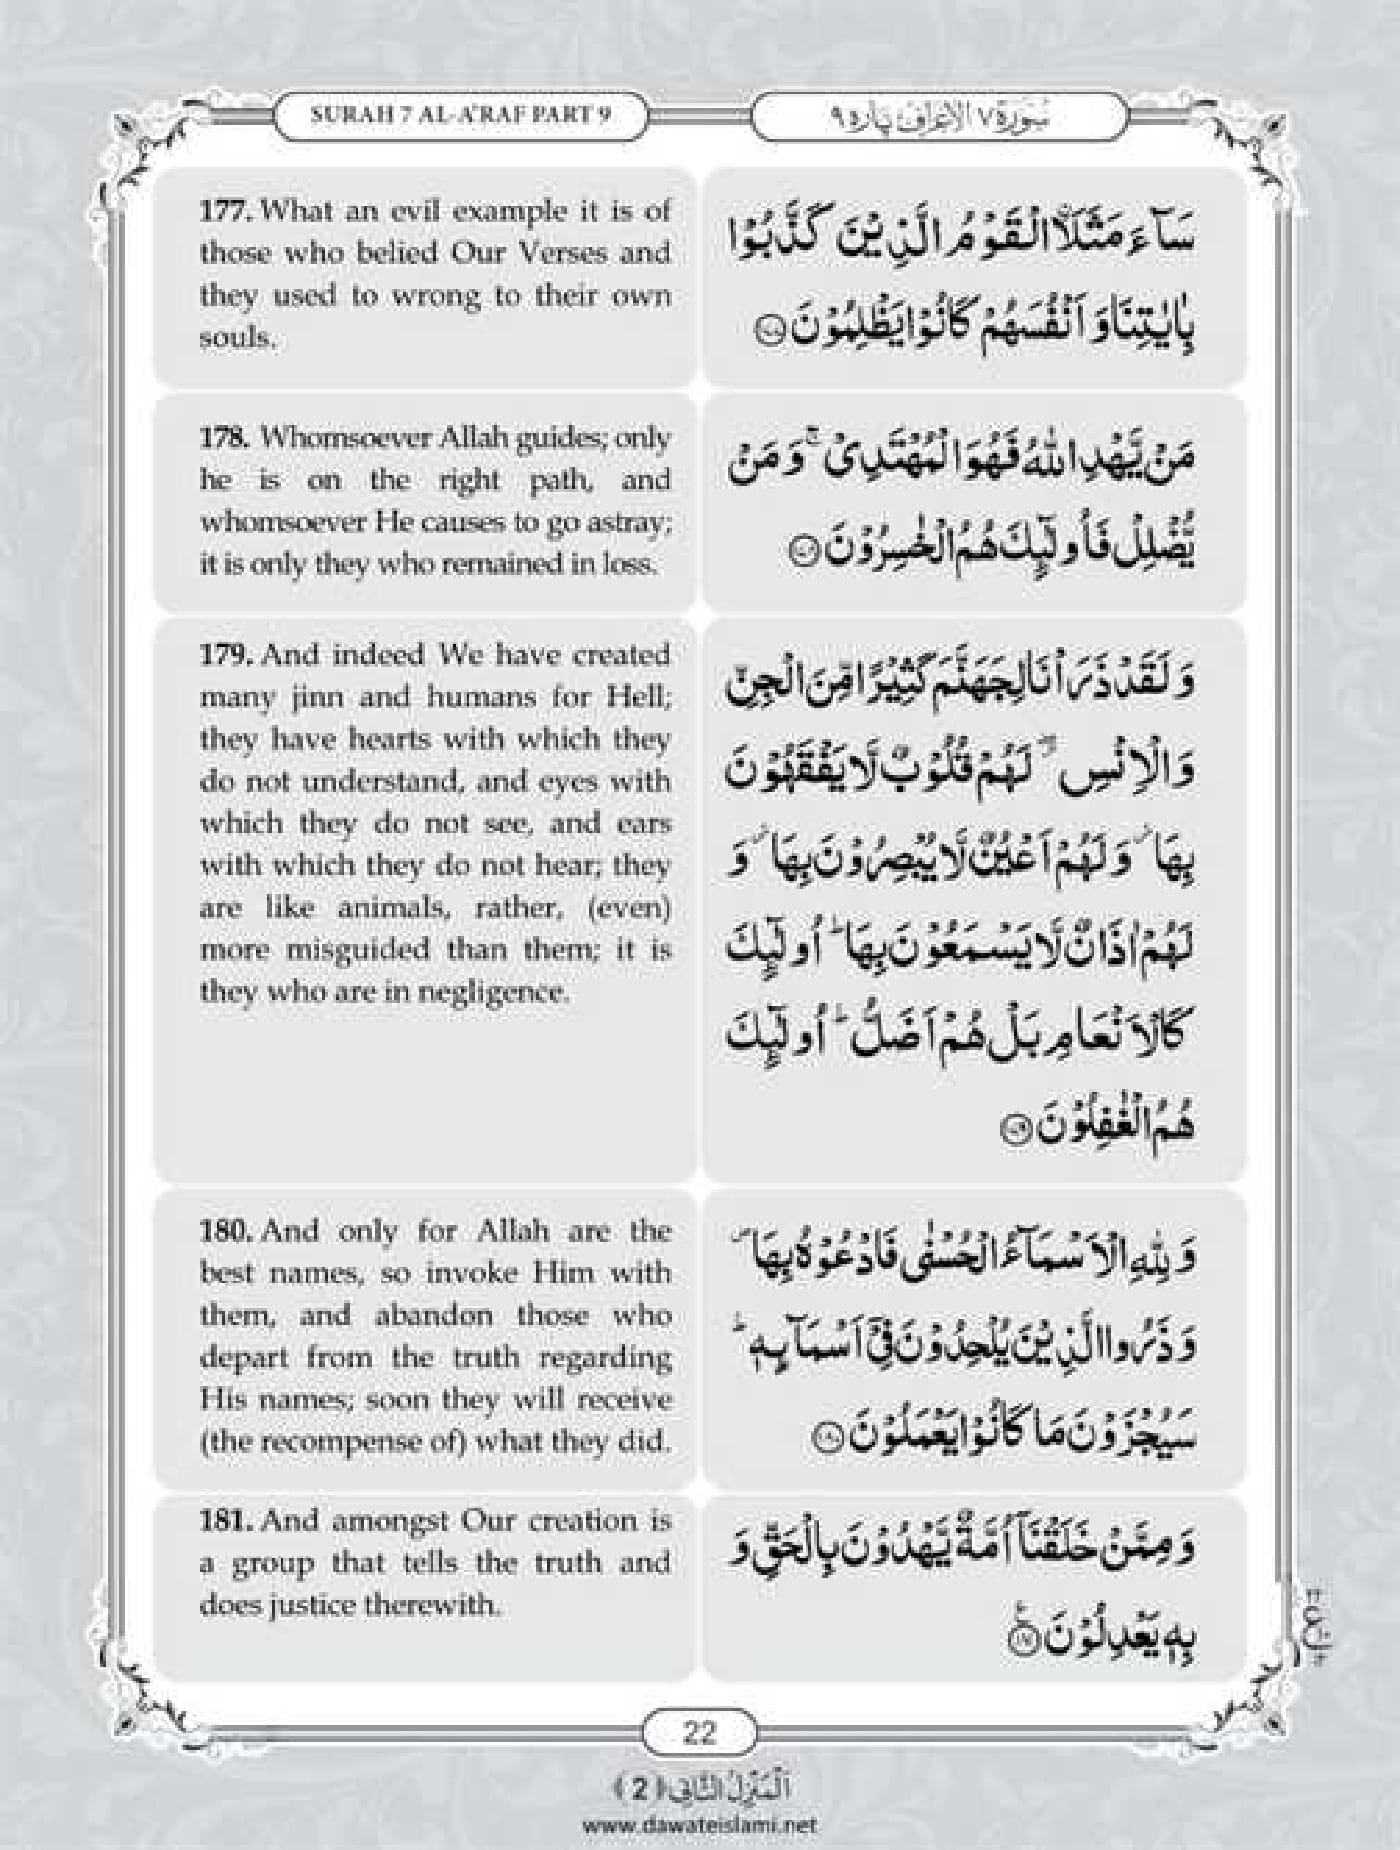 SURAH 7 AL-A'RAF PART 9
سُوْرَة ٧ الْاَعْرَاف پارہ ٩
177. What an evil example it is of
those who belied Our Verses and
they used to wrong to their own
souls.
سَآءَ مَثَلَاۨ الْقَوْمُ الَّذِیْنَ كَذَّبُوْا
بِاٰیٰتِنَا وَ اَنْفُسَهُمْ كَانُوْا یَظْلِمُوْنَ
178. Whomsoever Allah guides; only
he is on the right path, and
whomsoever He causes to go astray;
it is only they who remained in loss.
مَنْ یَّهْدِ اللّٰهُ فَهُوَ الْمُهْتَدِیْ ۚ وَ مَنْ
یُّضْلِلْ فَاُولٰٓىٕكَ هُمُ الْخٰسِرُوْنَ
179. And indeed We have created
many jinn and humans for Hell;
they have hearts with which they
do not understand, and eyes with
which they do not see, and ears
with which they do not hear; they
are like animals, rather, (even)
more misguided than them; it is
they who are in negligence.
وَ لَقَدْ ذَرَاْنَا لِجَهَنَّمَ كَثِیْرًا مِّنَ الْجِنِّ
وَ الْاِنْسِ ۖ٘ لَهُمْ قُلُوْبٌ لَّا یَفْقَهُوْنَ
بِهَا ٘ وَ لَهُمْ اَعْیُنٌ لَّا یُبْصِرُوْنَ بِهَا ٘ وَ
لَهُمْ اٰذَانٌ لَّا یَسْمَعُوْنَ بِهَا ؕ اُولٰٓىٕكَ
كَالْاَنْعَامِ بَلْ هُمْ اَضَلُّ ؕ اُولٰٓىٕكَ
هُمُ الْغٰفِلُوْنَ
180. And only for Allah are the
best names, so invoke Him with
them, and abandon those who
depart from the truth regarding
His names; soon they will receive
(the recompense of) what they did.
وَ لِلّٰهِ الْاَسْمَآءُ الْحُسْنٰى فَادْعُوْهُ بِهَا ۪
وَ ذَرُوا الَّذِیْنَ یُلْحِدُوْنَ فِیْۤ اَسْمَآىٕهٖ ؕ
سَیُجْزَوْنَ مَا كَانُوْا یَعْمَلُوْنَ
181. And amongst Our creation is
a group that tells the truth and
does justice therewith.
وَ مِمَّنْ خَلَقْنَاۤ اُمَّةٌ یَّهْدُوْنَ بِالْحَقِّ وَ
بِهٖ یَعْدِلُوْنَ
22
اَلْمَنْزِلُ الثَّانِی ﴿2﴾
www.dawateislami.net